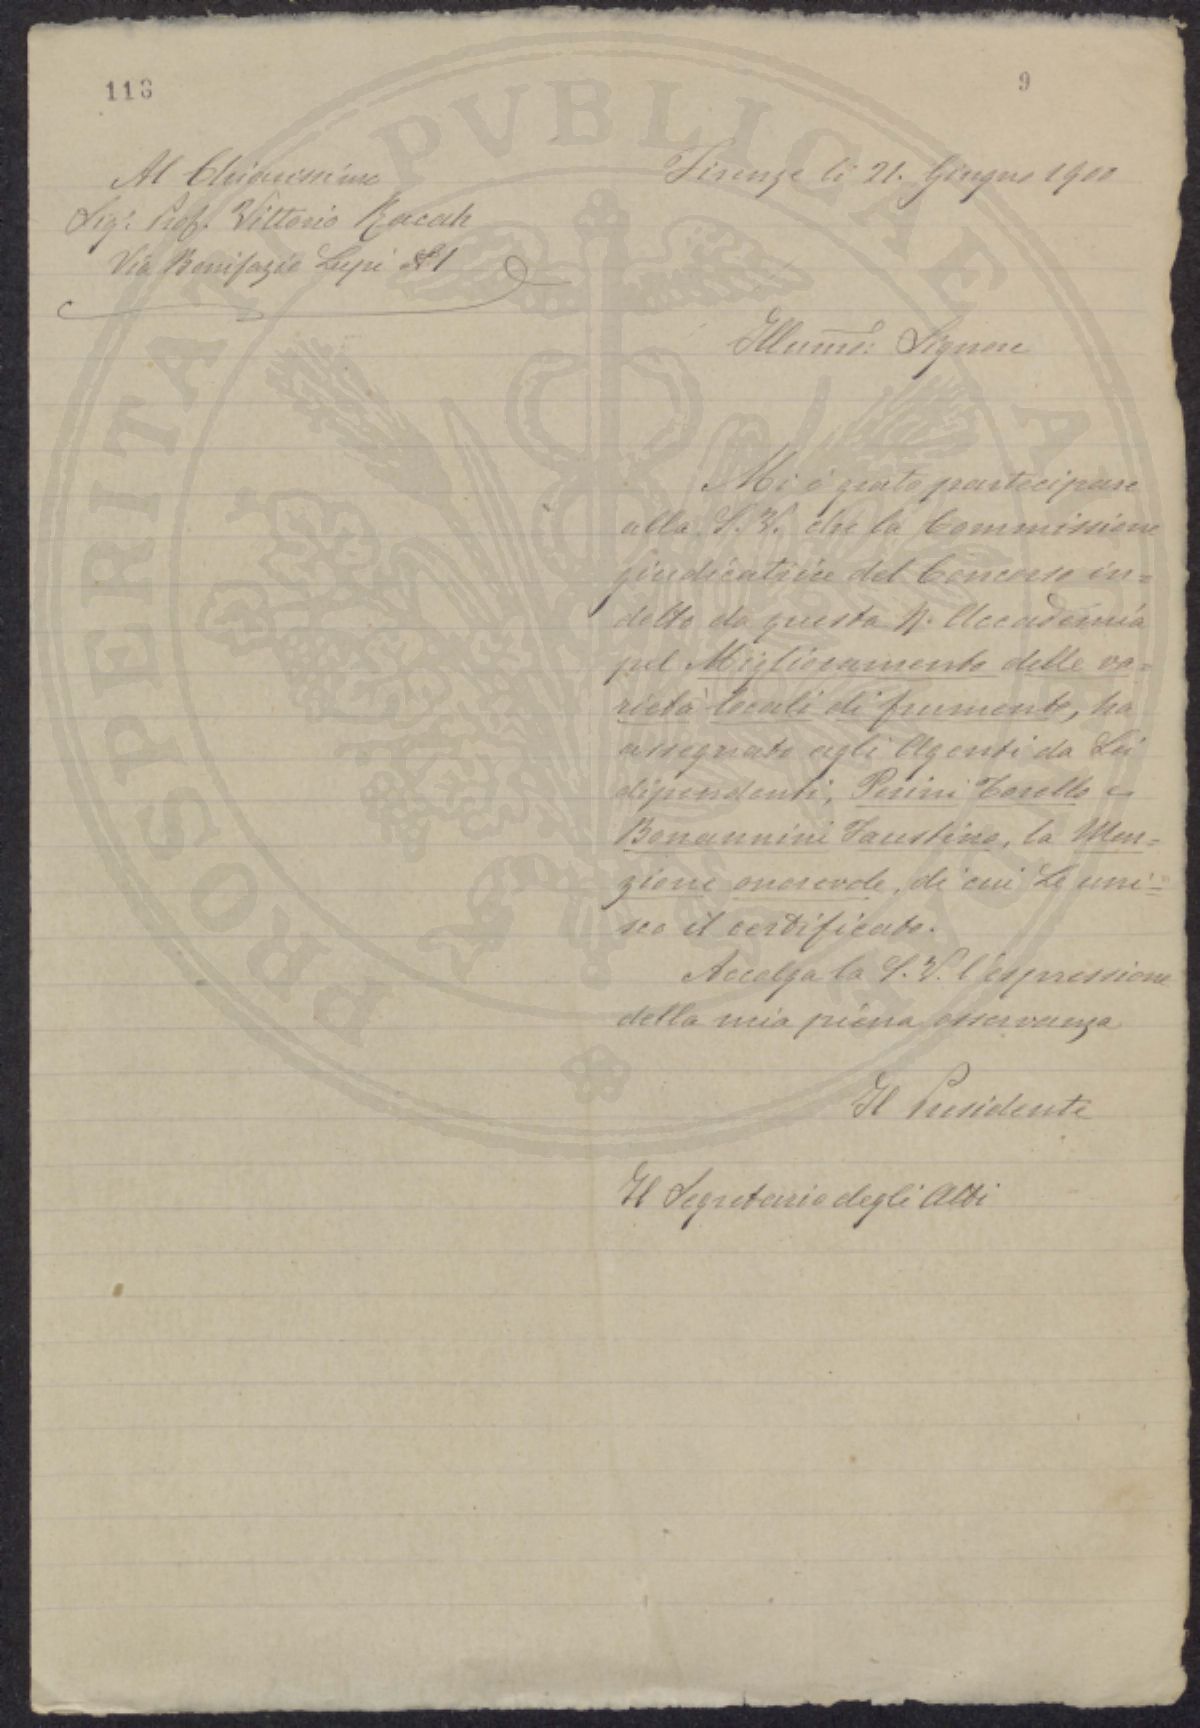 118
9
Al Chiarissimo
Sigr. Prof. Vittorio Racah
Via Bonifazio Lupi
Firenze li 21. Giugno 1900
Illumo: Signore
Mi è grato partecipare
alla S. V. che la Commissione
giudicatrice del Concorso in=
detto da questa R. Accademia
pel Miglioramento delle va=
rietà locali di frumento, ha
assegnato agli Agenti da Lei
dipendenti, Torello e
Bonannini Faustino, la Men=
zione onorevole, di cui Le uni=
sco il certificato.
Accolga la S. V. l'espressione
della mia piena osservanza
Il Presidente
Il Segretario degli Atti
PROSPERITATI PVBLICAE